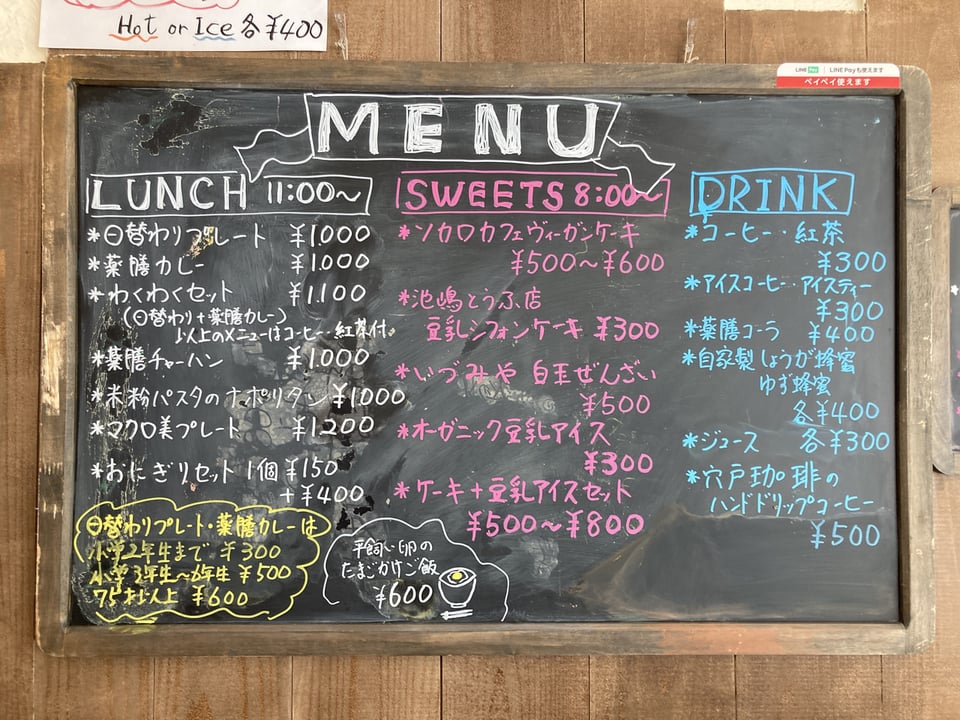 Hot or Ice 各¥400
LINE Pay LINE Payも使えます
ペイペイ使えます
MENU
LUNCH 11:00〜
*日替わりプレート ¥1.000
*薬膳カレー ¥1.000
*わくわくセット ¥1.100
(日替わり+薬膳カレー)
以上のメニューはコーヒー・紅茶付
*薬膳チャーハン ¥1.000
*米粉パスタのナポリタン ¥1000
*マクロ美プレート ¥1.200
*おにぎりセット 1個 ¥150
+¥400
日替わりプレート・薬膳カレーは
小学2年生まで ¥300
小学3年生〜6年生 ¥500
75才以上 ¥600
平飼い卵の
たまごかけご飯
¥600
SWEETS 8:00〜
*ソカロカフェヴィーガンケーキ
¥500〜¥600
*池嶋とうふ店
豆乳シフォンケーキ ¥300
*いづみや 白玉ぜんざい
¥500
*オーガニック豆乳アイス
¥300
*ケーキ+豆乳アイスセット
¥500〜¥800
DRINK
*コーヒー・紅茶
¥300
*アイスコーヒー・アイスティー
¥300
*薬膳コーラ ¥400
*自家製しょうが蜂蜜
ゆず蜂蜜
各¥400
*ジュース 各¥300
*穴戸珈琲の
ハンドドリップコーヒー
¥500